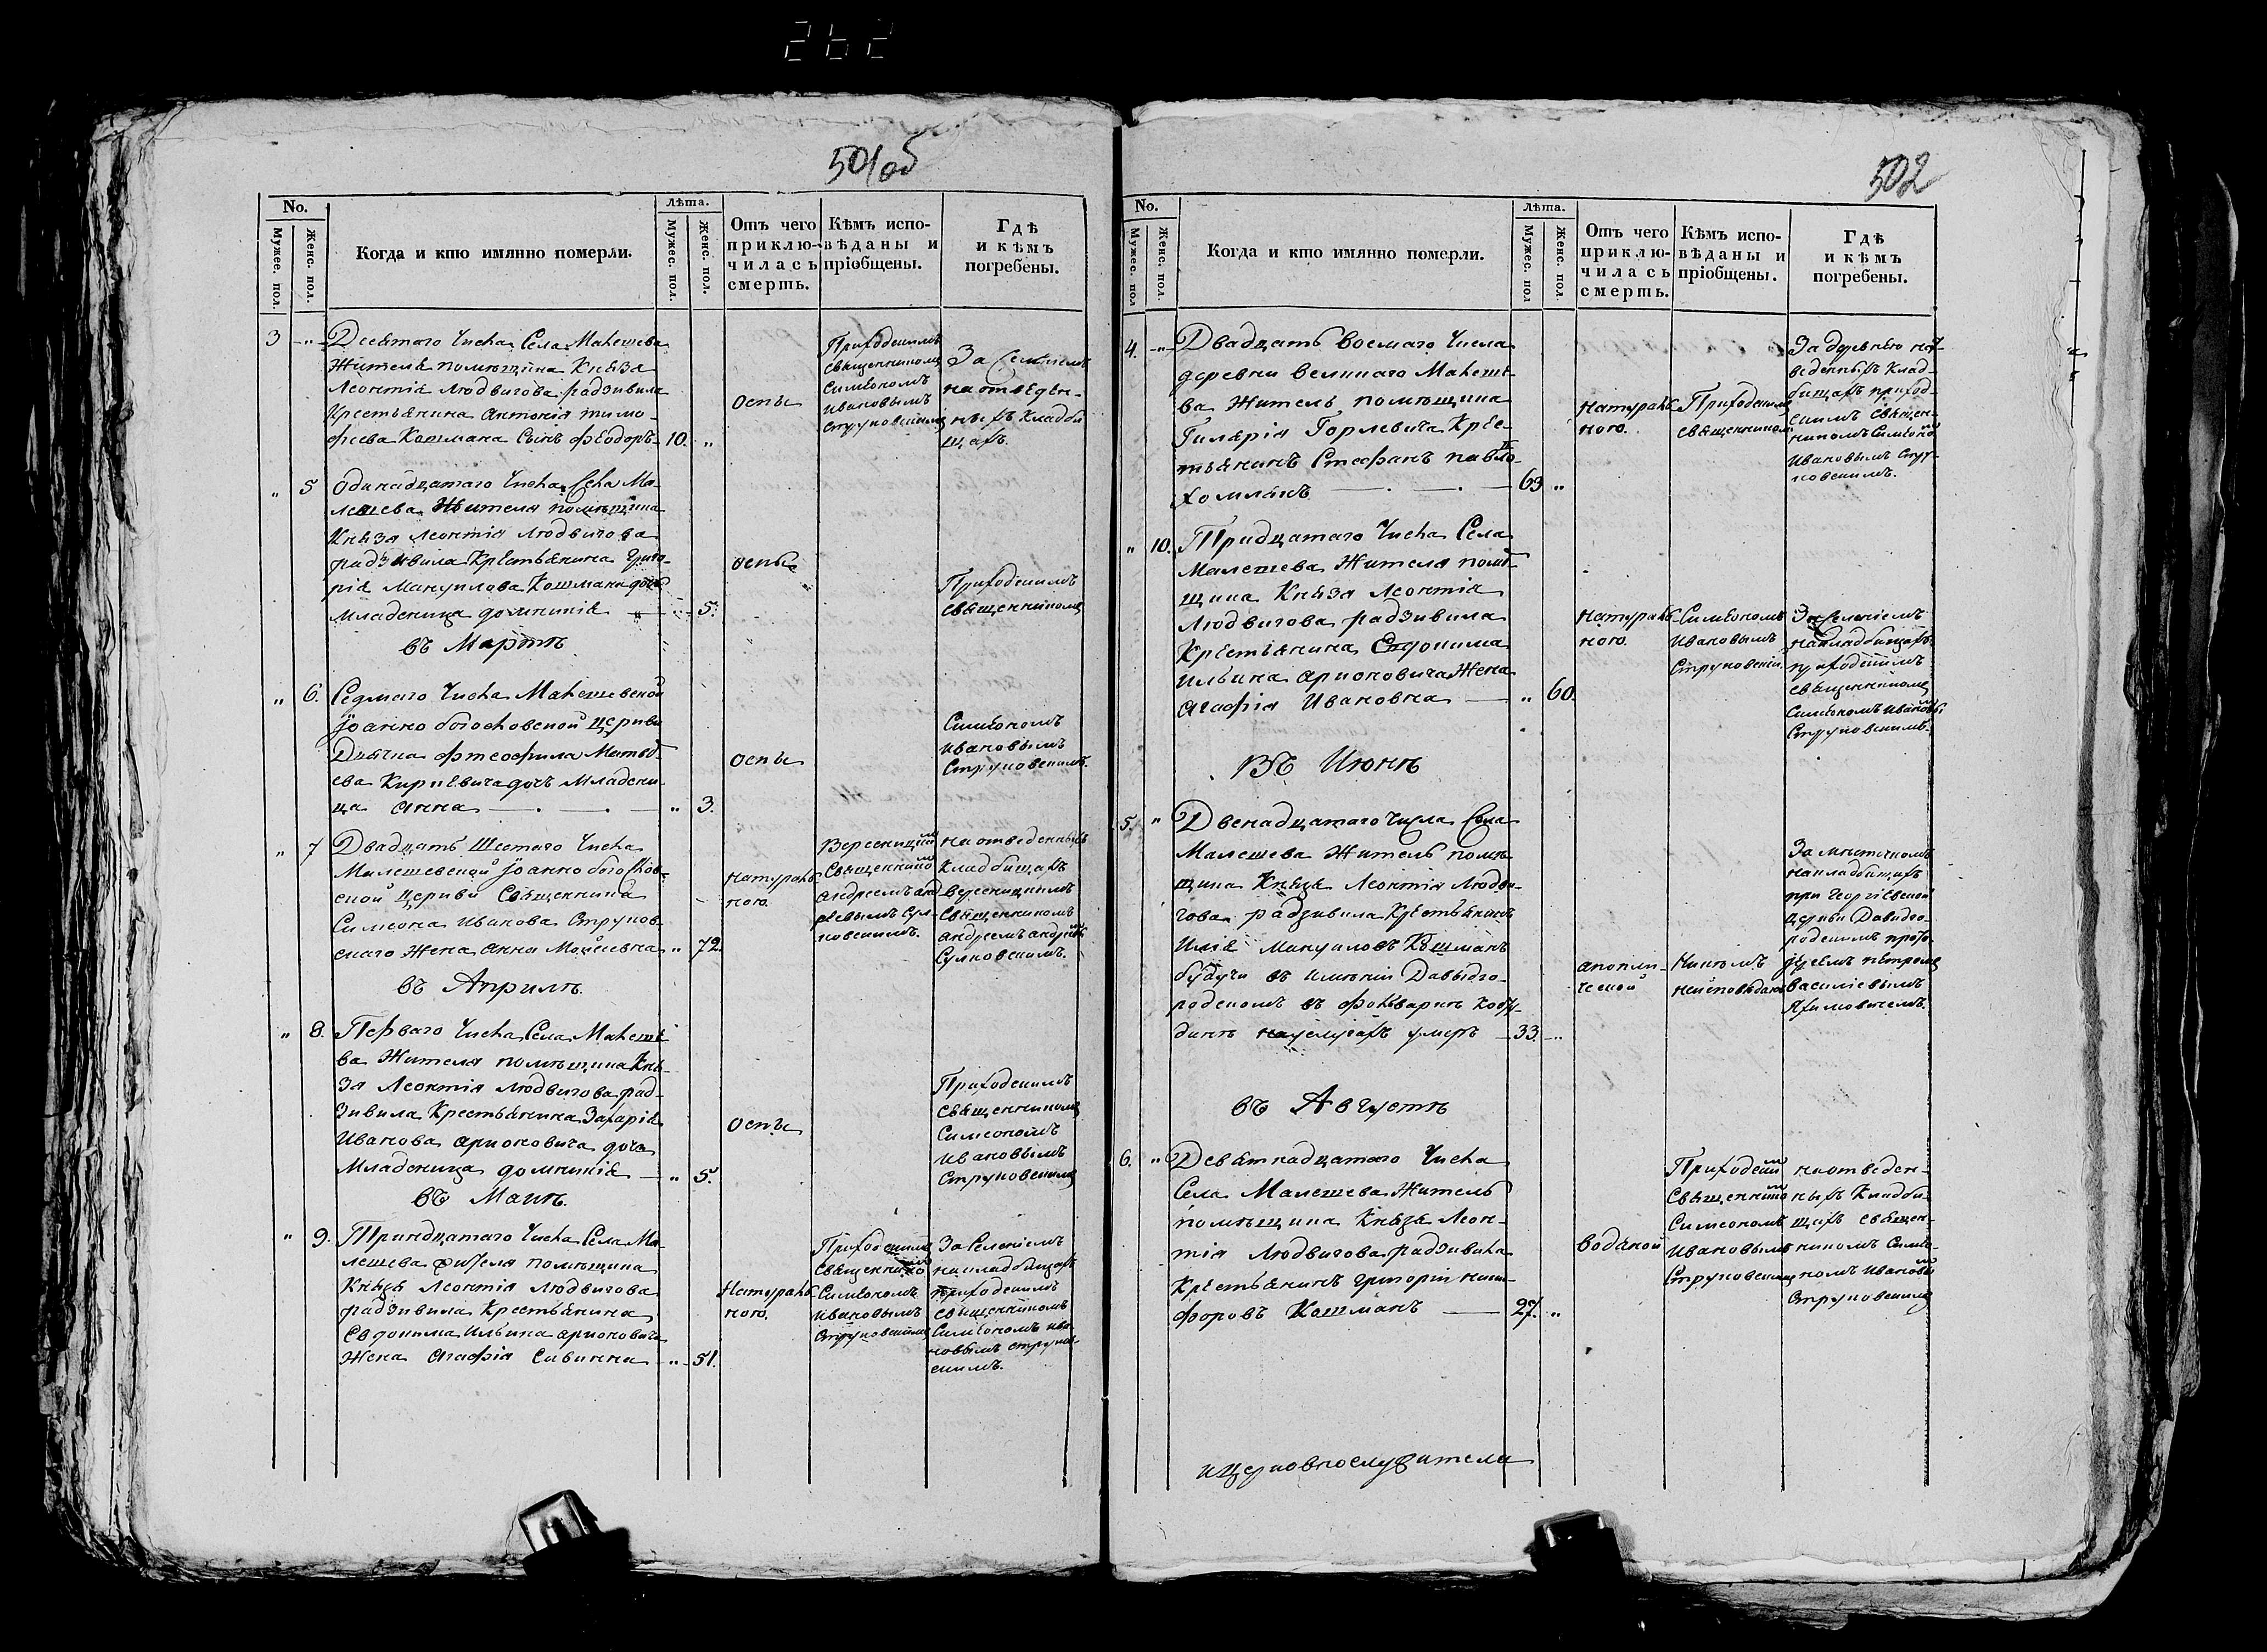 262
501об
No.
Мужес. пол.
Женс. пол.
Когда и кто имянно померли.
Лѣта.
Мужес. пол.
Женс. пол.
Отъ чего
приклю-
чилась
смерть.
Кѣмъ испо-
вѣданы и
пріобщены.
Гдѣ
и кѣмъ
погребены.
3 "
Десѧтаго Числа Села Малешева
Жителя помѣщика Князя
Леонтія Людвигова радзивила
Крестьянина Антонія тимо-
фѣева Кошмана Сынъ Ѳеодоръ 10. "
оспы
Приходскимъ
священникомъ
Симеономъ
Ивановымъ
Струковскимъ
За Селеніемъ
на отведен-
ныхъ кладби
щахъ.
" 5
Одинадцатаго Числа Села Ма-
лешева Жителя помѣщика
Князя Леонтія Людвигова
радзивила Крестьянина Григо-
рія Мануилова Кошмана дочь
Младеница домникія " 5.
оспы
Приходскимъ
священникомъ
въ Мартѣ
" 6.
Седмаго Числа Малешевской
Іоанно богословской Церкви
Дьячка Ѳеофила Матвѣ-
ева Кириевича дочь Младени-
ца Анна " 3.
оспы
Симеономъ
Ивановымъ
Струковскимъ.
" 7
Двадцать Шестаго Числа
Малешевской Іоанно богослов-
ской Церкви Священника
Симеона Иванова Струков-
скаго Жена Анна Моѵсеевна " 72.
натураль-
ною.
Вересницкимъ
Священникомъ
Андреемъ Анд
реевымъ Сул-
ковскимъ.
на отведенныхъ
Кладбищахъ
вересницкимъ
Священникомъ
Андреемъ Андреевы
Сулковскимъ.
въ Априлѣ
" 8.
Перваго Числа Села Малеше-
ва Жителя помѣщика Кня-
зя Леонтія Людвигова рад-
зивила Крестьянина Захарія
Иванова Арионовича дочь
Младеница домникія " 5.
оспы
Приходскимъ
священникомъ
Симеономъ
Ивановымъ
Струковскимъ
въ Маиѣ.
" 9.
Тринадцатаго Числа Села Ма-
лешева жителя помѣщика
Князя Леонтія Людвигова
радзивила Крестьянина
Евдокима Ильина Арионовича
Жена Агафія Савинна " 51.
Натураль-
ною.
Приходскимъ
Священникомъ
Симеономъ
Ивановымъ
Струковскимъ
За Селеніемъ
на кладбищахъ
приходскимъ
священникомъ
Симеономъ Ива-
новымъ Струков-
скимъ.
502
No.
Мужес. пол
Женс. пол.
Когда и кто имянно померли.
Лѣта.
Мужес. пол
Женс. пол.
Отъ чего
приклю-
чилась
смерть.
Кѣмъ испо-
вѣданы и
пріобщены.
Гдѣ
и кѣмъ
погребены.
4. "
Двадцать Восмаго Числа
деревни Великаго Малеше-
ва Житель помѣщика
Гилярія Горлевича Кре-
тьянинъ Стефанъ павло-
Хомлакъ 69 "
натураль
ною.
Приходскимъ
священником
За деревнею на от
веденныхъ Клад-
бищахъ приход-
скимъ священ-
никомъ Симеоно
Ивановымъ Стру-
ковскимъ.
" 10.
Тридцатаго Числа Села
Малешева Жителя помѣ-
щика Князя Леонтія
Людвигова радзивила
Крестьянина Евдокима
Ильина Арионовича Жена
Агафія Ивановна " 60.
натураль-
ною.
Симеономъ
Ивановымъ
Струковскім.
За Селеніемъ
на кладбищахъ
приходскимъ
священникомъ
Симеономъ Ивановы
Струковскимъ.
ВЪ Июнѣ
5. "
Двенадцатаго Числа Села
Малешева Житель помѣ-
щика Князя Леонтія Людви-
гова радзивила Крестьянинъ
Иліа Мануиловъ Кошманъ
будучи въ имѣніи Давыдго-
родскомъ въ фольваркѣ
на услугахъ умеръ 33. "
апоплі-
ческой
Никѣмъ
неисповѣданъ
За мѣстечкомъ
на кладбищахъ
при Георгіевской
церкви Давидго-
родскимъ прото-
іереемъ петромъ
василіевымъ
Яхимовичемъ.
въ Августѣ
6. "
Девятнадцатаго Числа
Села Малешева Житель
помѣщика Князя Леон-
тія Людвигова радзивила
Крестьянинъ Григорій ники-
форовъ Кошманъ 27. "
водяной
Приходским
Священником
Симеономъ
Ивановымъ
Струковским
на отведен-
ныхъ Кладби-
щахъ священ-
никомъ Симео-
номъ Ивановы
Струковскимъ
и Церковнослужители